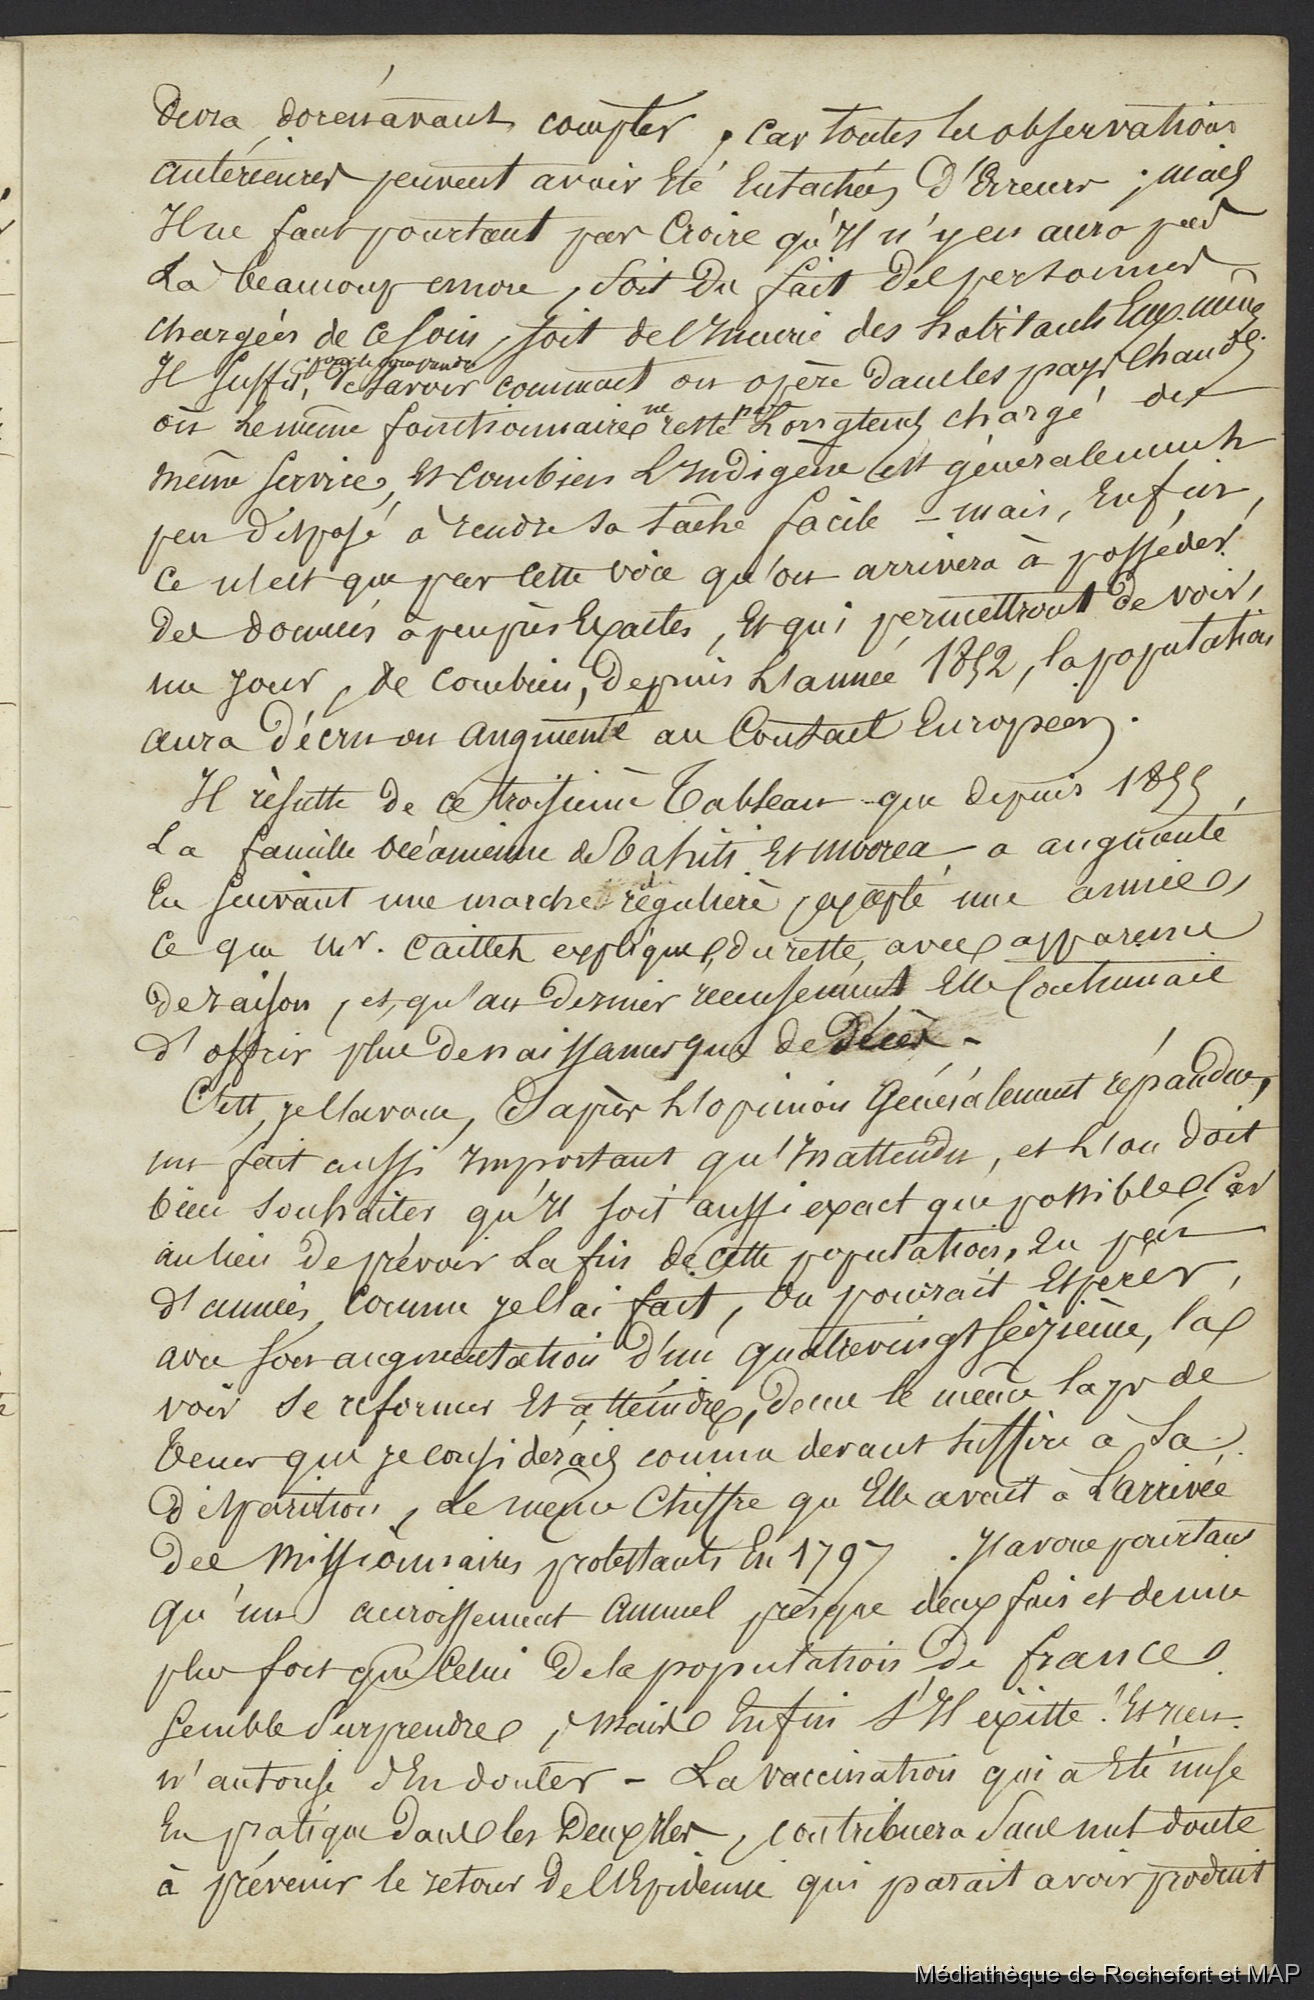 devra dorénavant compter, car toutes les observations
antérieures peuvent avoir été entachées d'Erreurs ; mais
Il ne faut pourtant pas Croire qu'Il n'y en aura pas
Là beaucoup encore, soit du fait des personnes
chargées de ce soin, soit de l'Incurie des habitants Eux-mêmes
Il suffit, pour le comprendre, de savoir comment on opère dans les pays chauds,
où le même fonctionnaire ne reste pas Longtemps chargé du
même service, et combien L'Indigène est généralement
peu disposé à rendre sa tâche facile - mais, Enfin,
ce n'est que par cette voie qu'on arrivera à posséder
des données à peu près Exactes, et qui permettront de voir,
un jour, de combien, depuis L'année 1852, la population
aura décru ou augmenté au Contact Européen.
Il résulte de ce troisième Tableau que depuis 1855,
La famille océanienne de Tahiti et Moorea a augmenté
En suivant une marche régulière, excepté une année,
ce que Mr. Caillet explique, du reste, avec apparence
de raison, et qu'au dernier recensement Elle Continuait
d'offrir plus de naissances que de Décès -
C'est, je l'avoue, d'après L'opinion Généralement répandue,
un fait aussi Important qu'Inattendu, et L'on doit
bien souhaiter qu'Il soit aussi exact que possible Car
au lieu de prévoir La fin de cette population, En peu
d'années, comme je l'ai fait, On pourrait Espérer,
avec son augmentation d'un quatrevingt seizième, la
voir se reformer Et atteindre, dans le même laps de
tems que je considérais comme devant suffire à Sa
disparition, Le même Chiffre qu'Elle avait à L'arrivée
des Missionnaires protestants En 1797. J'avoue pourtant
qu'un accroissement annuel presque deux fois et demie
plus fort que Celui de la population de france
semble surprendre, mais Enfin s'Il existe ! Et rien
n'autorise d'En douter - La vaccination qui a Eté mise
En pratique dans les Deux Iles, contribuera Sans nul doute
à prévenir le retour de l'Epidémie qui parait avoir produit
Médiathèque de Rochefort et MAP